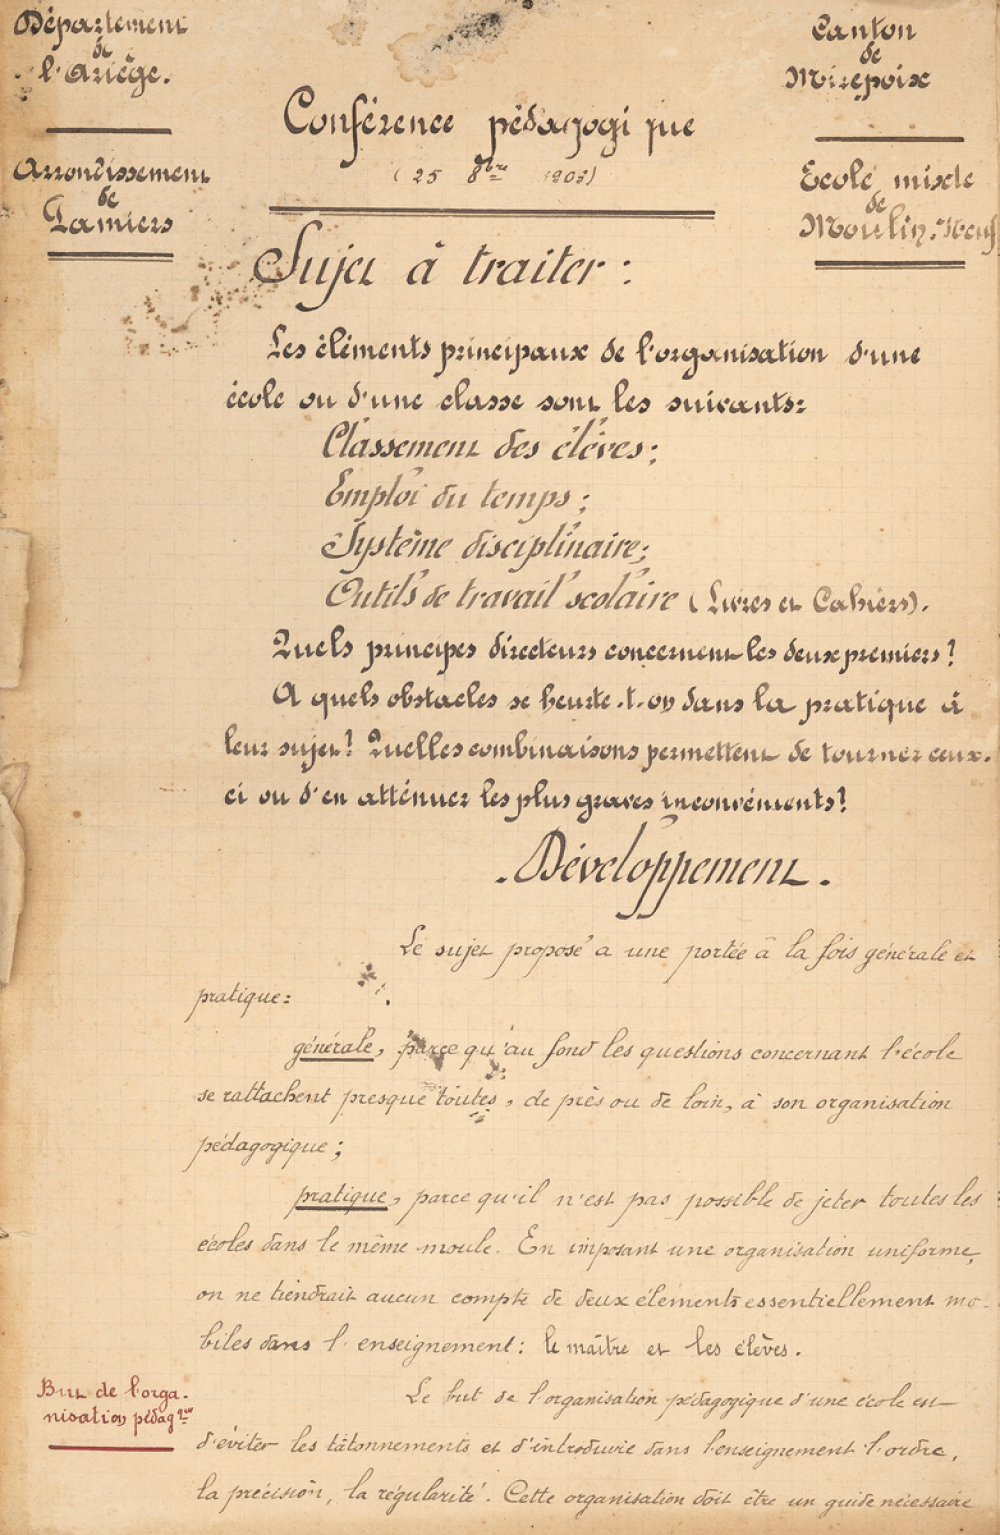 Département
de
l'Ariège.
Arrondissement
de
Pamiers
Canton
de
Mirepoix
Ecole mixte
de
Moulin-Neuf
Conférence pédagogique
(25 8bre 1908)
Sujet à traiter :
Les éléments principaux de l'organisation d'une
école ou d'une classe sont les suivants:
Classement des élèves;
Emploi du temps;
Système disciplinaire;
Outils de travail scolaire (Livres et Cahiers).
Quels principes directeurs concernent les deux premiers?
A quels obstacles se heurte-t-on dans la pratique à
leur sujet? Quelles combinaisons permettent de tourner ceux-
ci ou d'en atténuer les plus graves inconvénients?
. Développement .
Le sujet proposé a une portée à la fois générale et
pratique:
générale, parce qu'au fond les questions concernant l'école
se rattachent presque toutes, de près ou de loin, à son organisation
pédagogique;
pratique, parce qu'il n'est pas possible de jeter toutes les
écoles dans le même moule. En imposant une organisation uniforme,
on ne tiendrait aucun compte de deux éléments essentiellement mo-
biles dans l'enseignement: le maître et les élèves.
But de l'orga-
nisation pédagque
Le but de l'organisation pédagogique d'une école est
d'éviter les tâtonnements et d'introduire dans l'enseignement l'ordre,
la précision, la régularité. Cette organisation doit être un guide nécessaire